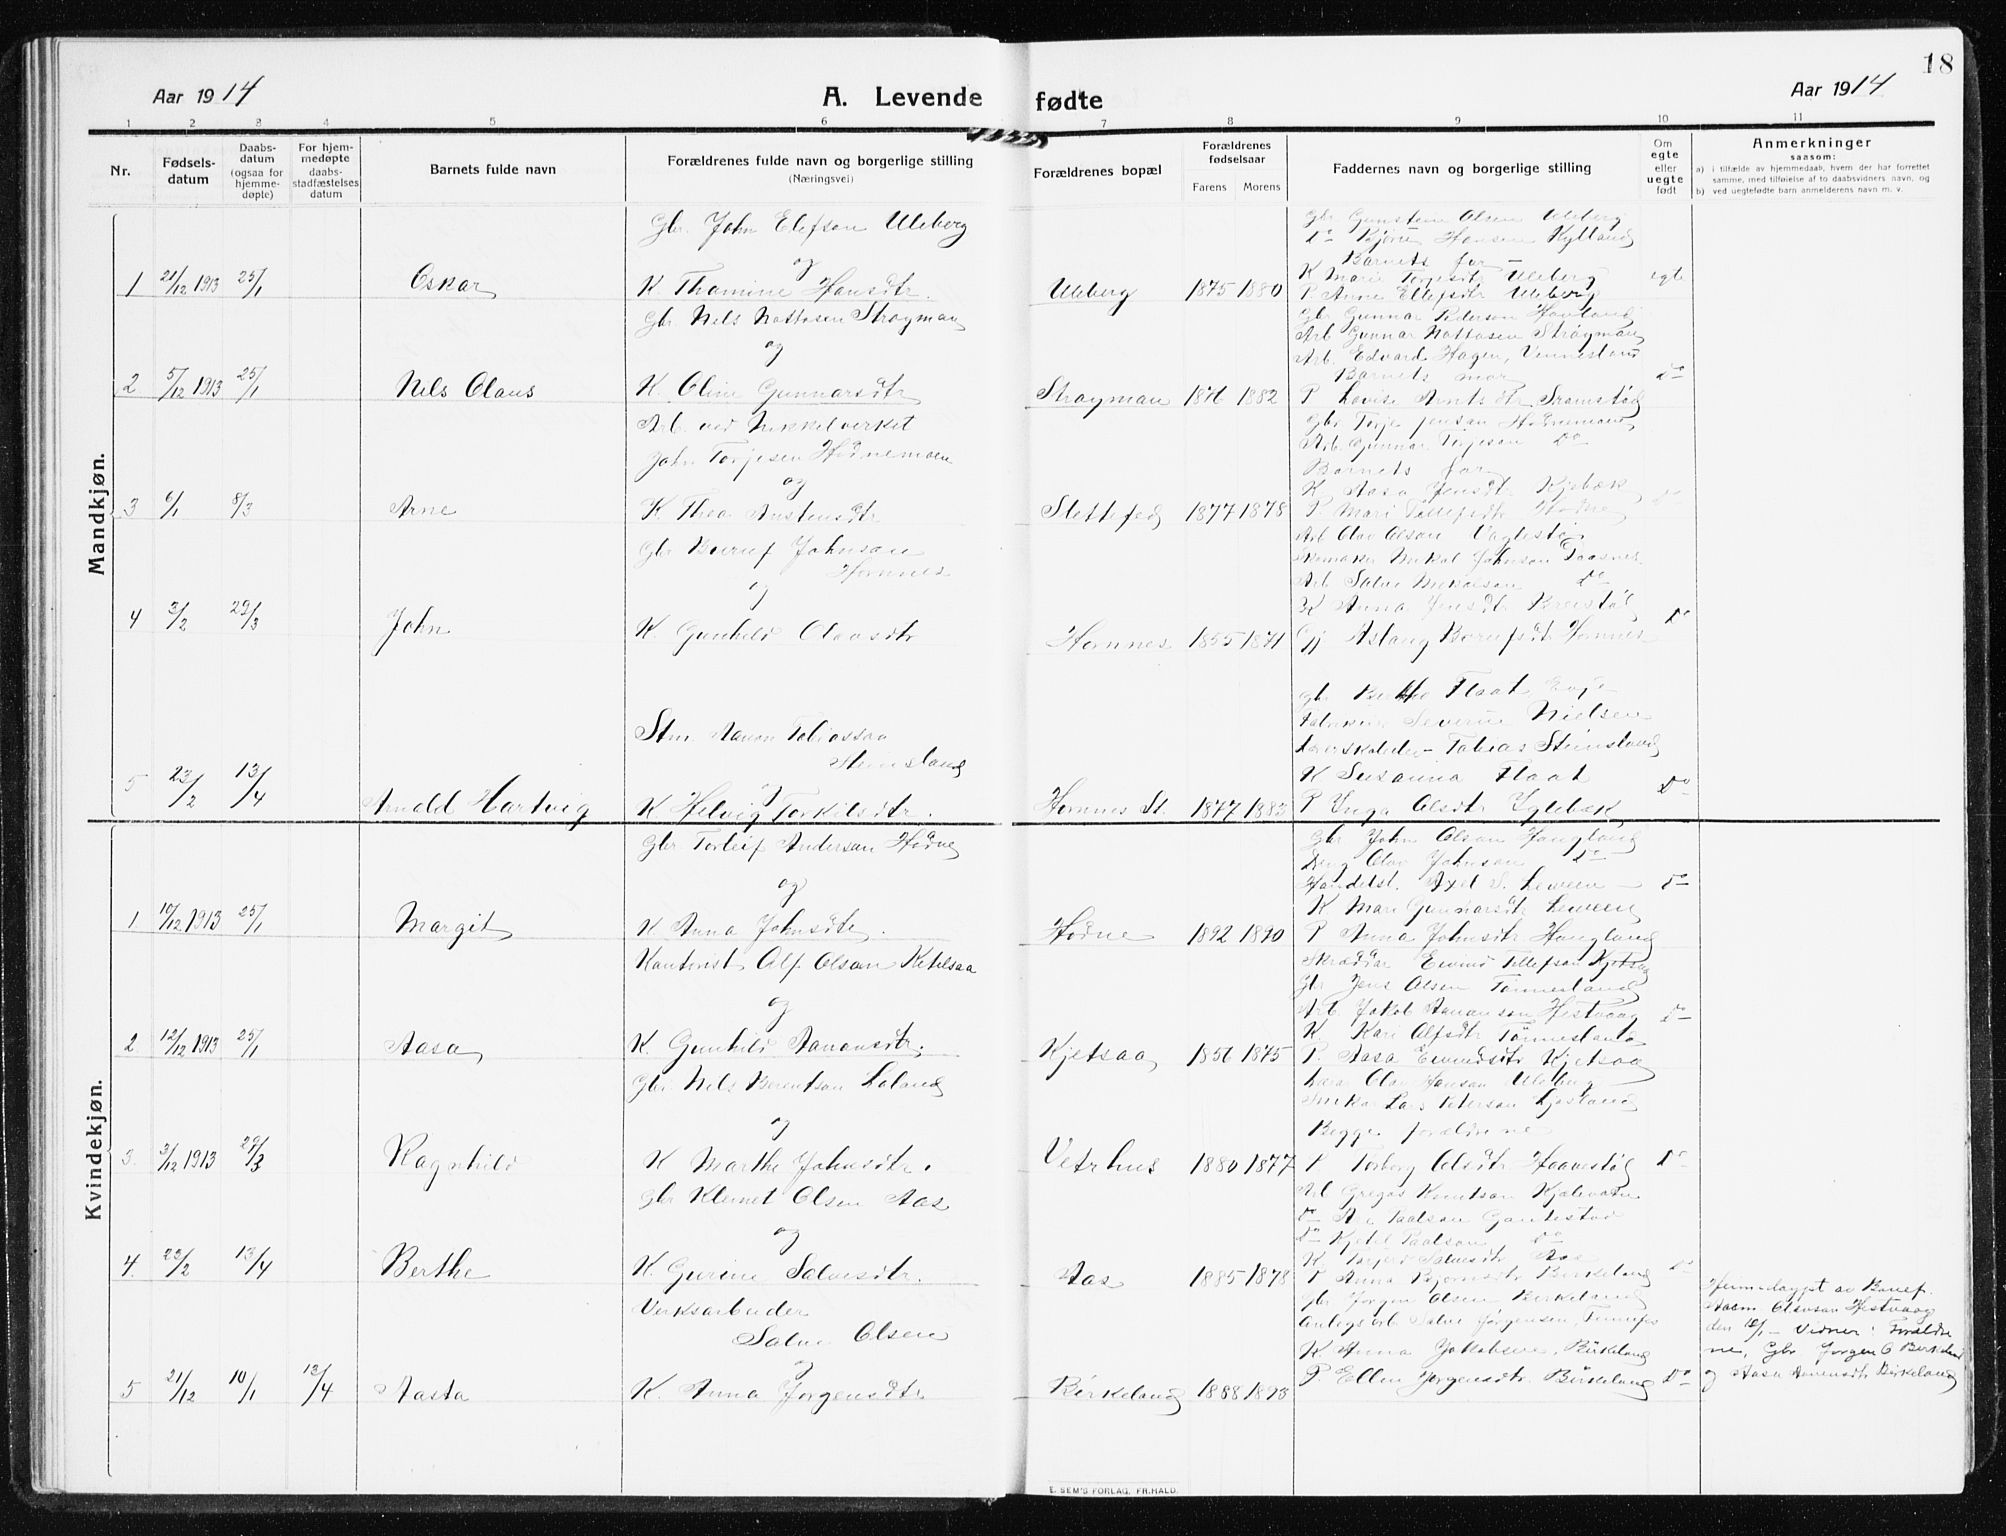 18
Aar 1914
A. Levende fødte
Aar 1914
1 2 3 4 5 6 7 8 9 10 11
Nr.
Fødsels-
datum
Daabs-
datum
(ogsaa for
hjemme-
døpte)
For hjem-
medøpte
daabs-
stadfæstelses
datum
Barnets fulde navn
Forældrenes fulde navn og borgerlige stilling
(Næringsvei)
Forældrenes bopæl
Forældrenes
fødselsaar
Farens Morens
Faddernes navn og borgerlige stilling
Om
egte
eller
uegte
født
Anmerkninger
saasom:
a) i tilfælde av hjemmedaab, hvem der har forrettet
samme, med tilføielse af to daabsvidners navn, og
b) ved uegtefødte barn anmelderens navn m. v.
Mandkjøn.
1 21/12 1913 25/1 Oskar
Gbr. John Elefson Uleberg
og
K. Thomine Hansdtr.
Uleberg 1875 1880
Gbr Gunsten Olsen Uleberg
Do Bjørn Hansen Kylland
Barnets far
K Mari Torjesdtr Uleberg
P. Anne Ellefsdtr Uleberg
egte
2 5/12 1913 25/1 Nils Olaus
Gbr. Nils Nottosen Strøyman
og
K. Oline Gunnarsdtr
Strøyman 1876 1882
Gbr Gunnar Pederson Hovland
Arb Gunnar Nottosen Strøyman
Arb. Edvard Hagen, Venneslan
Barnets mor
P Lovise Arntsdtr
Do
3 6/1 8/3 Arne
Arb. ved Nikkelverket
John Torjesen Hodnemoen
og
K. Thea Austensdtr
Slettefed 1877 1878
Gbr Torje Jensen Hodnemoen
Arb Gunnar Torjeson Do
Barnets far
K Aasa Jensdtr Kjebæk
P Mari Tellefsdtr Hodne
Do
4 3/2 29/3 John
Gbr Boruf Johnson
Hornnes
og
K. Gunhild Olausdtr
Hornnes 1855 1871
Arb Olav Olson Vaglestø
Skomaker Nikol Johnson Faasnes
Arb Salve Nikolson Do
K Anna Jensdtr Breistøl
Gj Aslaug Borufsdtr Hornnes
Do
5 23/2 13/4 Arnold Hartvig
Stm Aanon Tobiassen
Steinsland
og
K. Helvig Torkilsdtr.
Hornnes St. 1877 1883
Gbr Flaat Evje
Severin Nielsen
Tobias Steinsland
K Susanna Flaat
P Inga Olsdtr Iglebæk
Do
Kvindekjøn.
1 10/12 1913 25/1 Margit
Gbr Torleif Anderson Hodne
og
K Anna Johnsdtr.
Hodne 1892 1890
Gbr John Olson Haugland
Deng Olav Johnson Do
Handelst. Axel S. Leween
K Mari Gunnarsdtr Leween
P Anna Johnsdtr Haugland
Do
2 12/12 1913 25/1 Aasa
Kantorist Alf Olson Ketelsaa
og
K. Gunhild Aanonsdtr.
Kjetsaa 1856 1875
Skrædder Eivind Tellefson Kjetsaa
Gbr Jens Olsen Tønnesland
Arb. Jakob Aanonson Hestvaag
K Kari Alfsdtr Tønnesland
P. Aasa Eivindsdtr Kjetsaa
Do
3. 3/12 1913 29/3 Ragnhild
Gbr Nils Berentson Laland
og
K Marthe Johnsdtr.
Vetrhus 1880 1877
Olav Hanson Uleberg
Lars Peterson Ljosland
Begge forældrene
P Torborg Olsdtr Haavestøl
Do
4. 23/2 13/4 Berthe
Gbr Klemet Olsen Aas
og
K. Gurine Salvesdtr.
Aas 1885 1878
Arb Gregas Knutson Kjelevatn
Do Are Paalson Gautestad
Do Kjetel Paalson Do
K Salvesdtr Aas
P Anna Bjørnsdtr Birkeland
Do
5 21/12 10/1 13/4 Aasta
Verksarbeider
Salve Olsen
og
K. Anna Jørgensdtr
Birkeland 1888 1893
Gbr Jørgen Olsen Birkeland
Anlegsarb Salve Jørgensen, Tennefos
K. Anna Jakobsen, Birkeland
P Ellen Jørgensdtr. Birkeland
Do
Heimedøypt av
Olavson Hestvaag
den 10/1 - Vidner: Foreldre
ne, Gbr Jørgen O Birkeland
og Aasa Aanensdtr Birkeland
E. SEM'S FORLAG, FR.HALD.